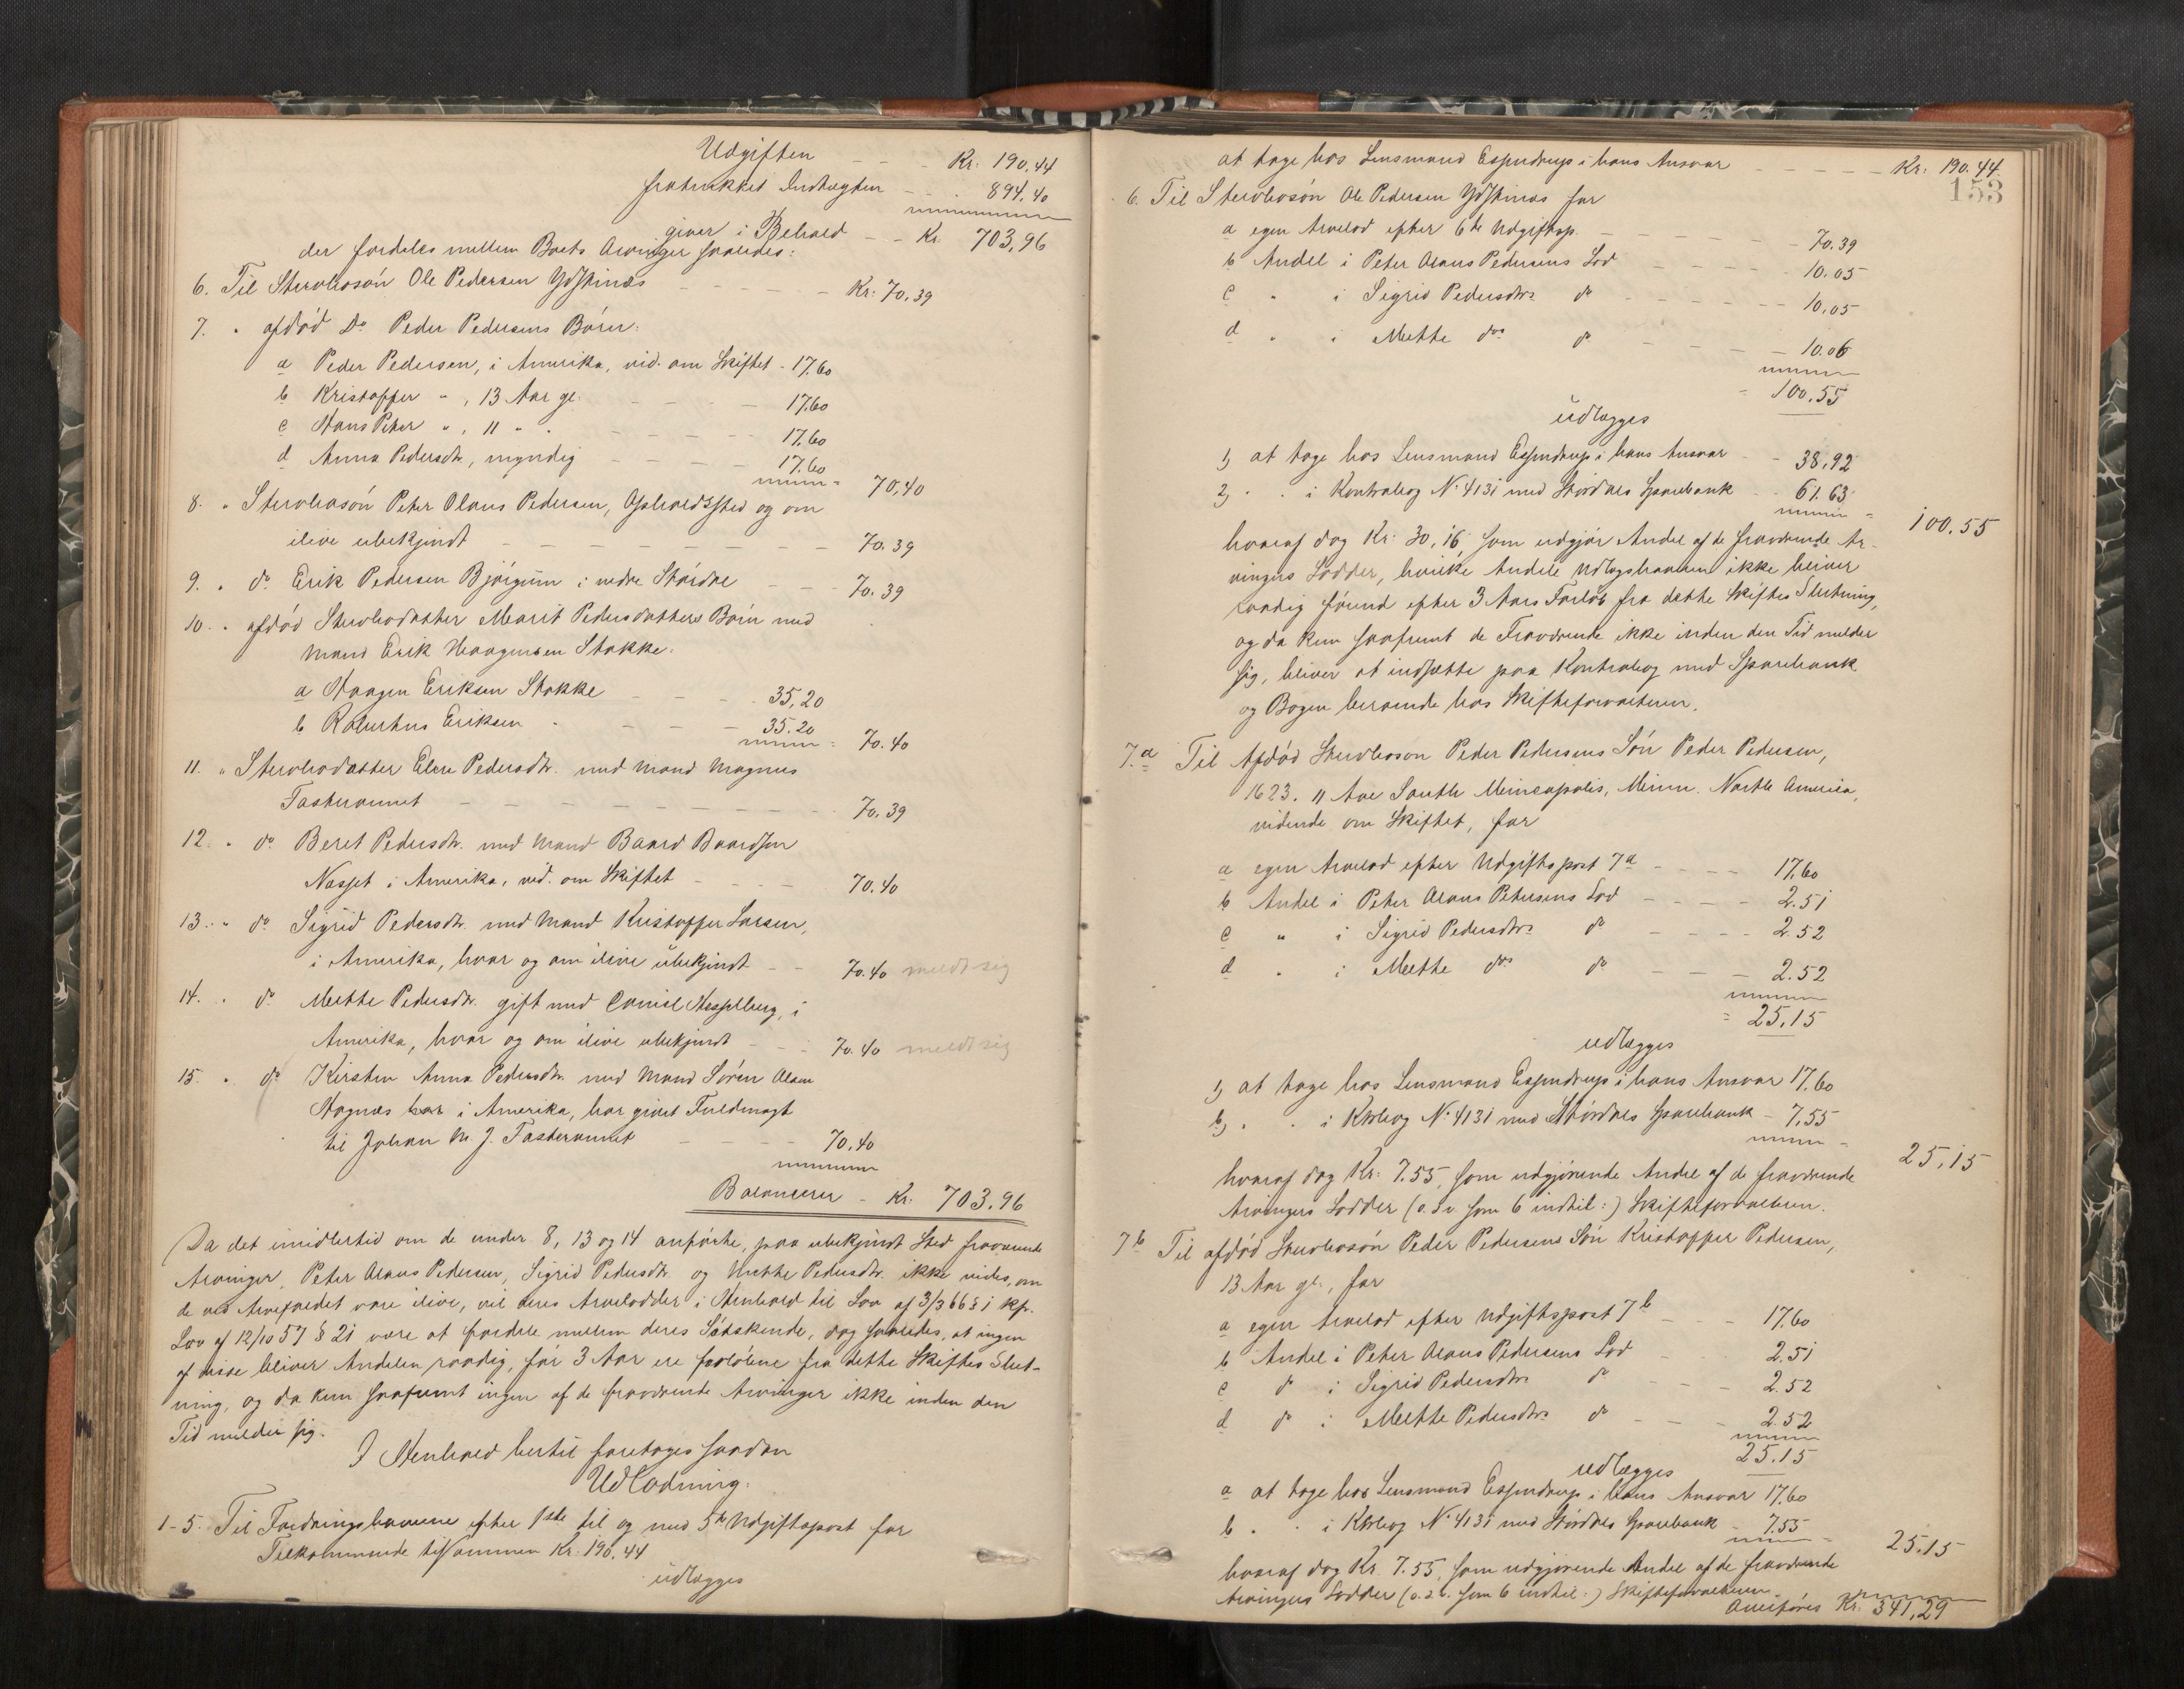 Udgiften - - - Kr. 190.44
fratrukket Indtægten - - - 894.40
giver i Behold - - Kr. 703,96
der fordeles mellem Boets Arvinger saaledes:
6. Til Stervbosøn Ole Pedersen Ydstines - - - - - Kr: 70,39
7. " afdød Do Peder Pedersens Börn:
a Peder Pedersen, i Amerika, vid. om Skiftet - 17.60
b Kristoffer " , 13 Aar gl. - - - - 17.60
c Hans Peter " , 11 " " - - - - 17.60
d Anna Pedersdtr., myndig - - - - 17.60
= 70,40
8. " Stervbosön Peter Olaus Pedersen, Opholdssted og om
ilive ubekjendt - - - - - - - - 70.39
9. " do Erik Pedersen Bjørgum i nedre Stördal - - - 70.39
10. " afdød Stervbodatter Marit Pedersdatters Börn med
Mand Erik Haagensen Stokke:
a Haagen Eriksen Stokke - - - 35,20
b Robertus Eriksen " - - - - 35.20
= 70.40
11. " Stervbodatter Elen Pedersdtr. med Mand Magnus
- - - - - - - - 70.39
12. " do Beret Pedersdtr. med Mand Baard Baardsen
Nasset i Amerika, vid. om Skiftet - - - 70.40
13. " do Sigrid Pedersdtr. med Mand Kristoffer Larsen,
i Amerika, hvor og om ilive ubekjendt - - 70.40 meldt sig
14. " do Mette Pedersdtr. gift med Hesselberg, i
Amerika, hvor og om ilive ubekjendt - - - 70.40 meldt sig
15. " do Kirsten Anna Pedersdtr. med Mand Sören Olsen
Hognæs i Amerika, har givet Fuldmagt
til Johan M. J. - - - - 70,40
Balancerer - Kr. 703.96
Da det imidlertid om de under 8, 13 og 14 anförte, paa ubekjendt Sted fraværende
Arvinger, Peter Olaus Pedersen, Sigrid Pedersdtr. og Mette Pedersdtr. ikke vides, om
de ved Arvefaldet vare ilive, vil deres Arvelodder i Henhold til Lov af 3/3 66 § 1 kfr.
Lov af 12/10 57 § 21 være at fordele mellem deres Sødskende, dog saaledes, at ingen
af disse bliver Andelen raadig, för 3 Aar ere forlöbne fra dette Skiftes Slut-
ning, og da kun saafremt ingen af de fraværende Arvinger ikke inden den
Tid melder sig.
I Henhold hertil foretoges saadan
Udlodning:
1-5. Til Fordringshaverne efter 1ste til og med 5te Udgiftspost for
Tilkommende tilsammen Kr. 190.44
udlægges
at tage hos Lensmand Espindrup i hans Ansvar - - - - - Kr: 190.44
153
6. Til Stervbosön Ole Pedersen Ydstines for
a egen Arvelod efter 6te Udgiftsp. - - - - - - 70.39
b Andel i Peter Olaus Pedersens Lod - - - - - 10.05
c " i Sigrid Pedersdtrs do - - - - - 10.05
d " i Mette dos do - - - - 10.06
= 100.55
udlægges
1) at tage hos Lensmand Espindrup i hans Ansvar - - 38.92
2) " " i Kontrabog No 4131 med Stördals Sparebank - - 61.63
= 100.55
hvoraf dog Kr. 30,16, som udgjör Andel af de fraværende Ar-
vingers Lodder, hvilke Andele Udlægshaveren ikke bliver
raadig förend efter 3 Aars Forløb fra dette Skiftes Slutning,
og da kun saafremt de Fraværende ikke inden den Tid melder
sig, bliver at indsætte paa Kontrabog med Sparebank
og Bogen beroende hos Skifteforvalteren.
7.a Til Afdød Stervbosøn Peder Pedersens Sön Peder Pedersen,
1623. 11 Ave South Mineapolis, Minn. North America,
vidende om Skiftet, for
a egen Arvelod efter Udgiftspost 7a - - - - 17.60
b Andel i Peter Olaus Petersens Lod - - - - 2.51
c " i Sigrid Pedersdtrs do - - - - 2.52
d " i Mette dos do - - - 2.52
= 25.15
udlægges
1) at tage hos Lensmand Espindrup i hans Ansvar 17.60
b) " " i Ktrbog No 4131 med Stördals Sparebank - 7.55
= 25,15
hvoraf dog Kr. 7.55, som udgjørende Andel af de fraværende
Arvingers Lodder (o.s.v. som 6 indtil:) Skifteforvalteren.
7b Til afdød Stervbosøn Peder Pedersens Sön Kristoffer Pedersen,
13 Aar gl., for
a egen Arvelod efter Udgiftspost 7b - - - 17.60
b Andel i Peter Olaus Pedersens Lod - 2.51
c do i Sigrid Pedersdtrs do - - - 2.52
d do i Mette Pedersdtrs do - - - 2.52
25.15
udlægges
a at tage hos Lensmand Espindrup i hans Ansvar 17.60
b " " i Ktrbog No 4131 med Stördals Sparebank - 7.55
= 25.15
hvoraf dog Kr. 7.55, som udgjørende Andel af de fraværende
Arvingers Lodder (o.s.v. som 6 indtil:) Skifteforvalteren.
Overføres Kr. 341,29